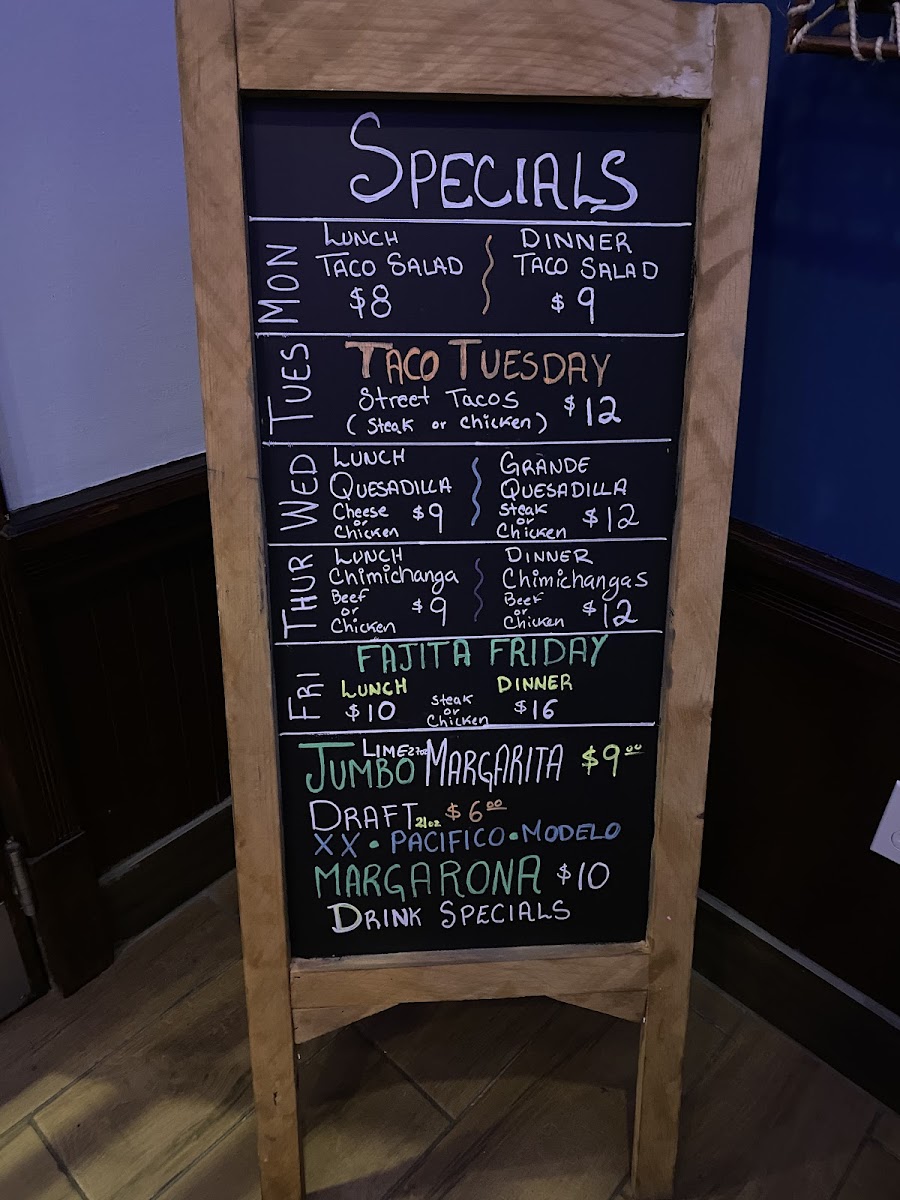 SPECIALS
MON
LUNCH
TACO SALAD
$8
DINNER
TACO SALAD
$9
TUES
TACO TUESDAY
Street Tacos
(Steak or Chicken)
$12
WED
LUNCH
QUESADILLA
Cheese
or
Chicken
$9
GRANDE
QUESADILLA
Steak
or
Chicken
$12
THUR
LUNCH
Chimichanga
Beef
or
Chicken
$9
DINNER
Chimichangas
Beef
or
Chicken
$12
FRI
FAJITA FRIDAY
LUNCH
$10
Steak
or
Chicken
DINNER
$16
LIME 27oz
JUMBO MARGARITA $9.00
DRAFT 21oz $6.00
XX • PACIFICO • MODELO
MARGARONA $10
DRINK SPECIALS